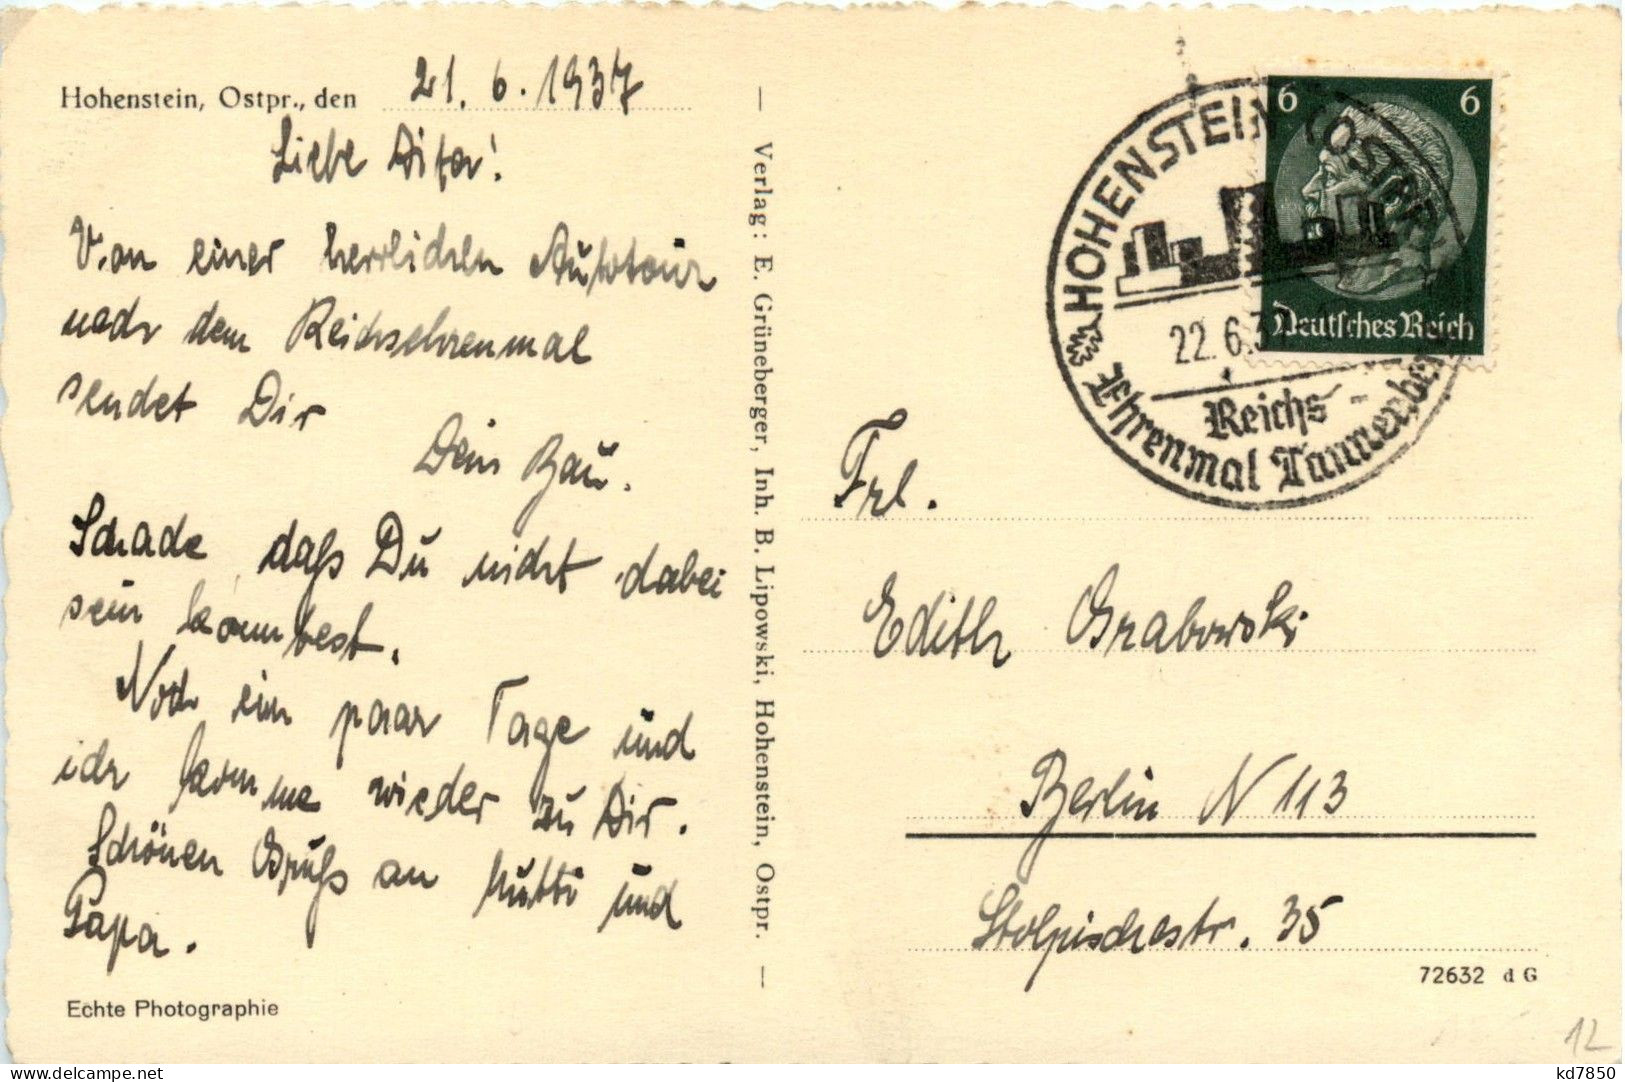 Hohenstein, Ostpr., den 21. 6. 1937
Liebe
Von einer herrlichen Autotour
nach dem Reichsehrenmal
sendet Dir
Dein
Schade, daß Du nicht dabei
sein konntest.
Noch ein paar Tage und
ich komme wieder zu Dir.
Schönen Gruß an Mutti und
Papa.
Echte Photographie
— Verlag: E. Grüneberger, Inh. B. Lipowski, Hohenstein, Ostpr. —
HOHENSTEIN (OSTPR.)
22.6.37
Reichs-
Ehrenmal Tannenberg
6 6
Deutsches Reich
Frl.
Edith Grabowski
Berlin N 113
Stolpischestr. 35
72632 d G
12
kd7850